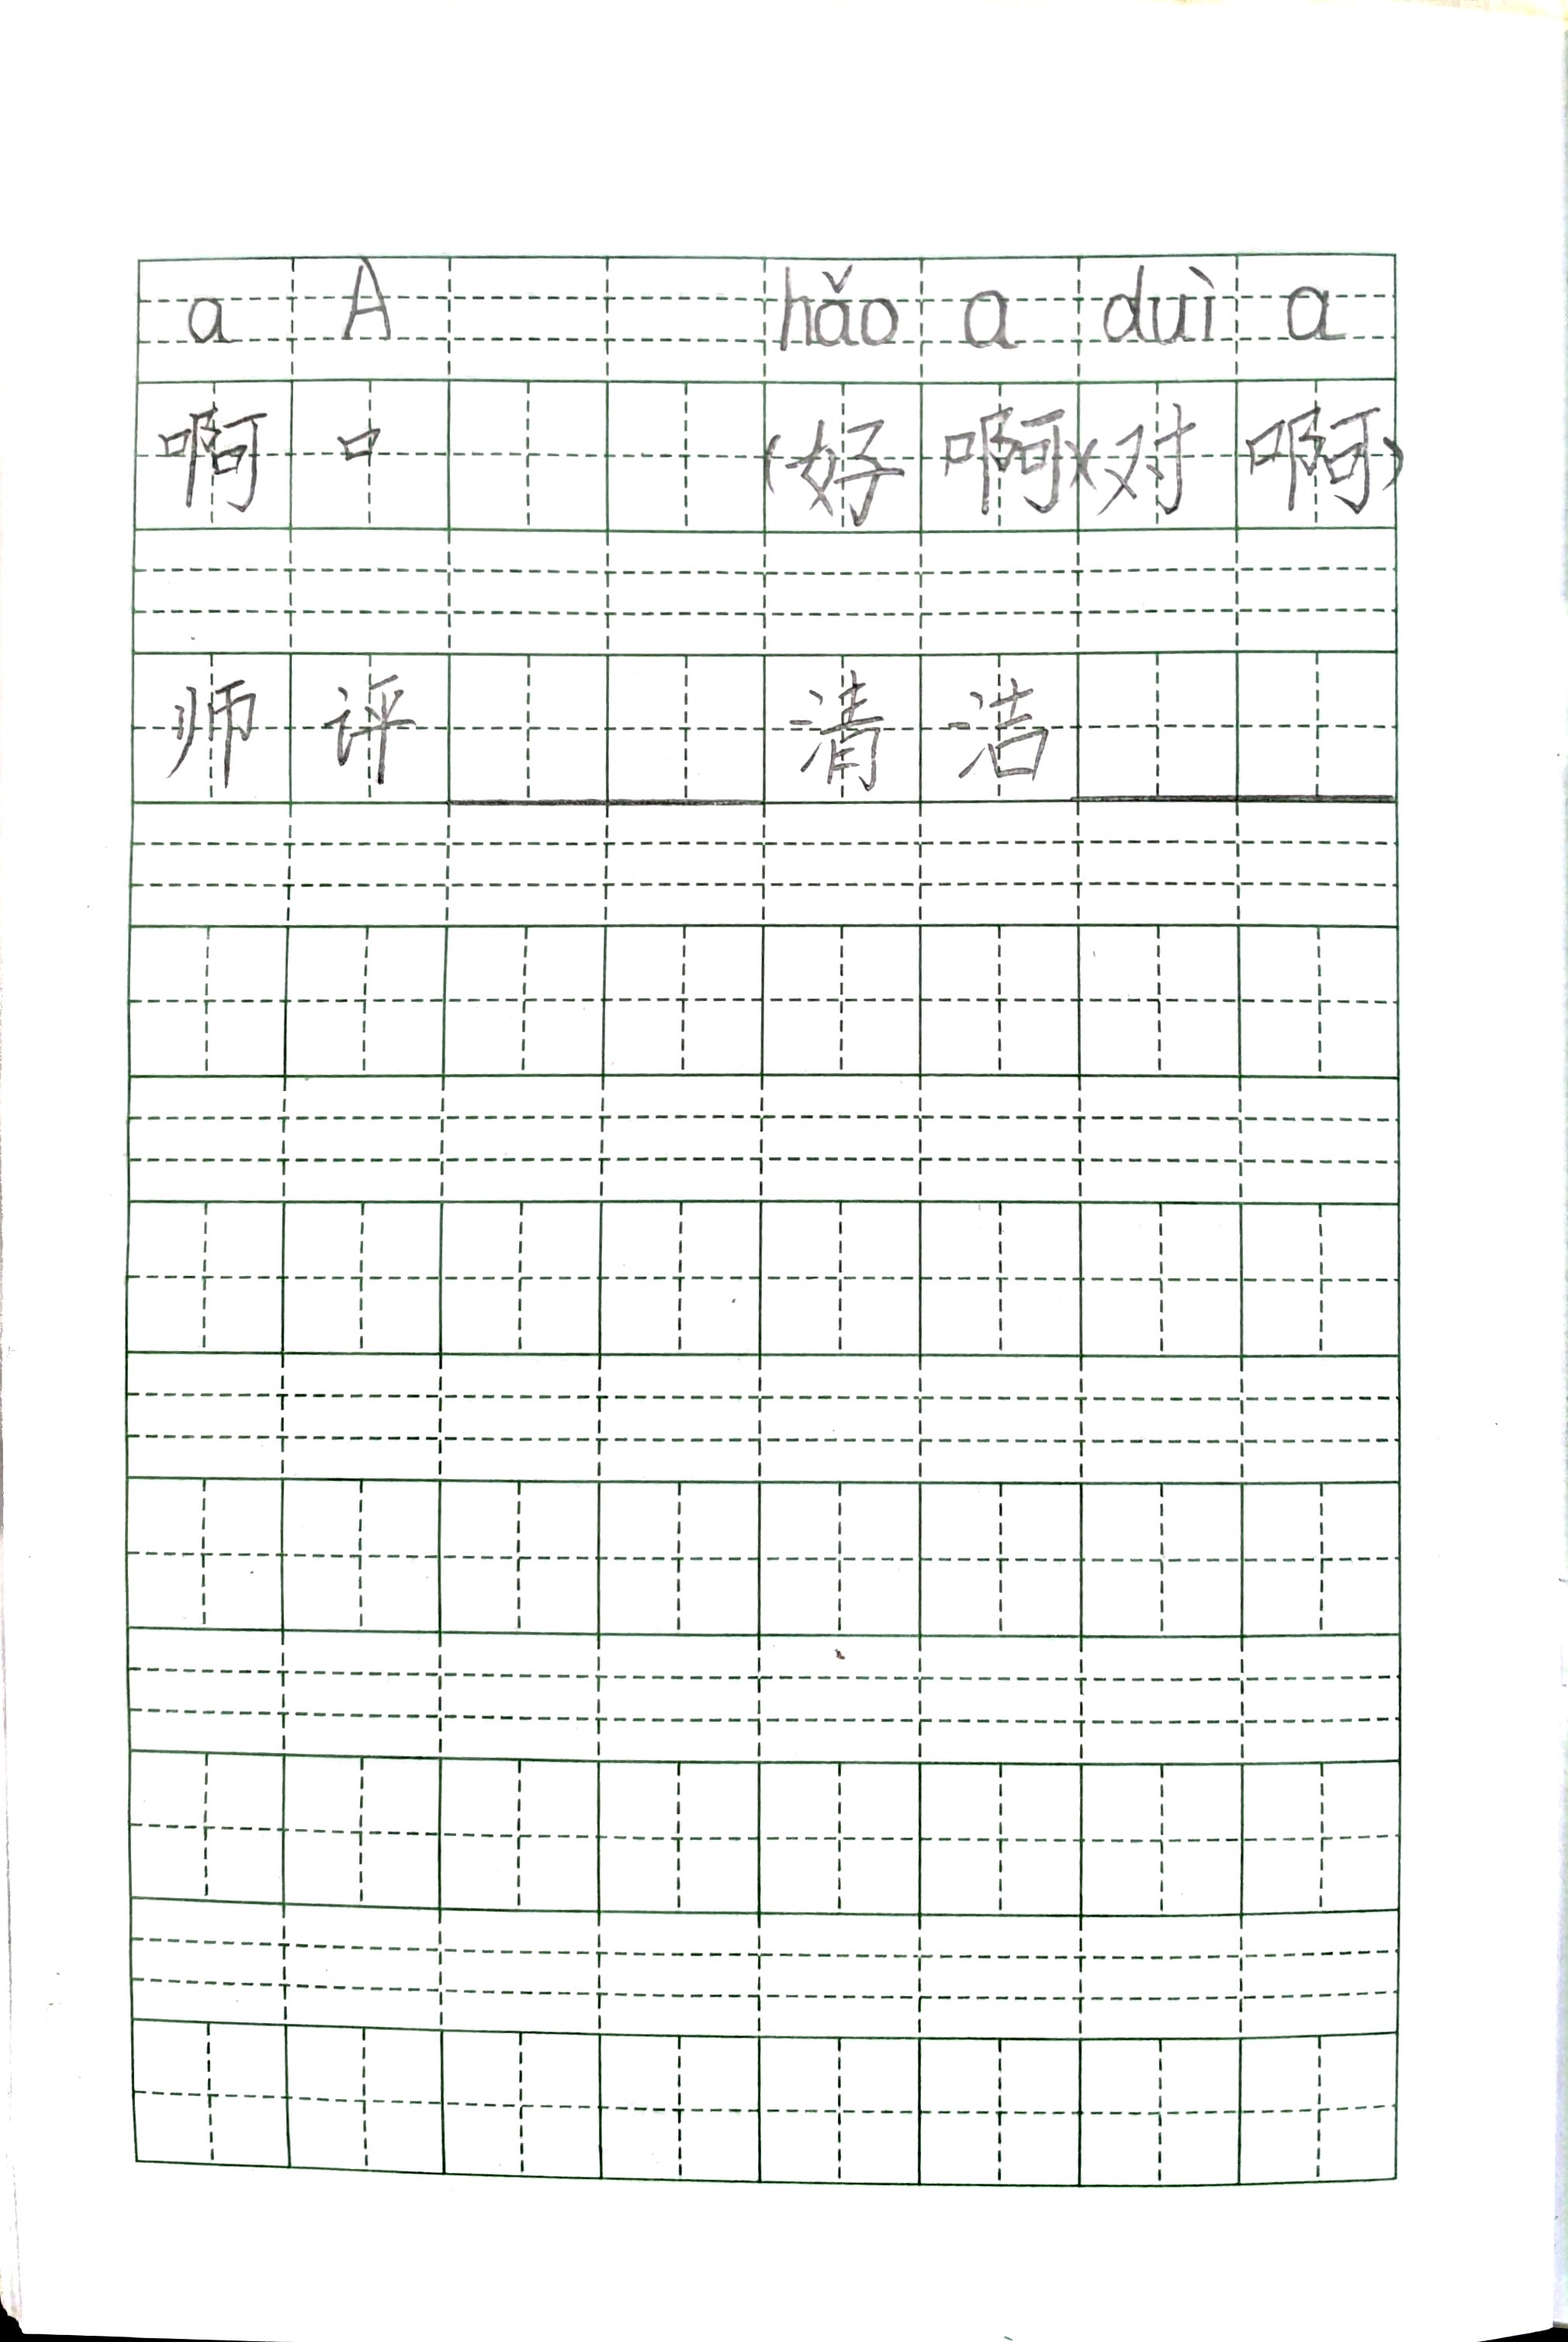 a A hǎo a duì a
啊 口 (好 啊)(对 啊)
师 评 清 洁